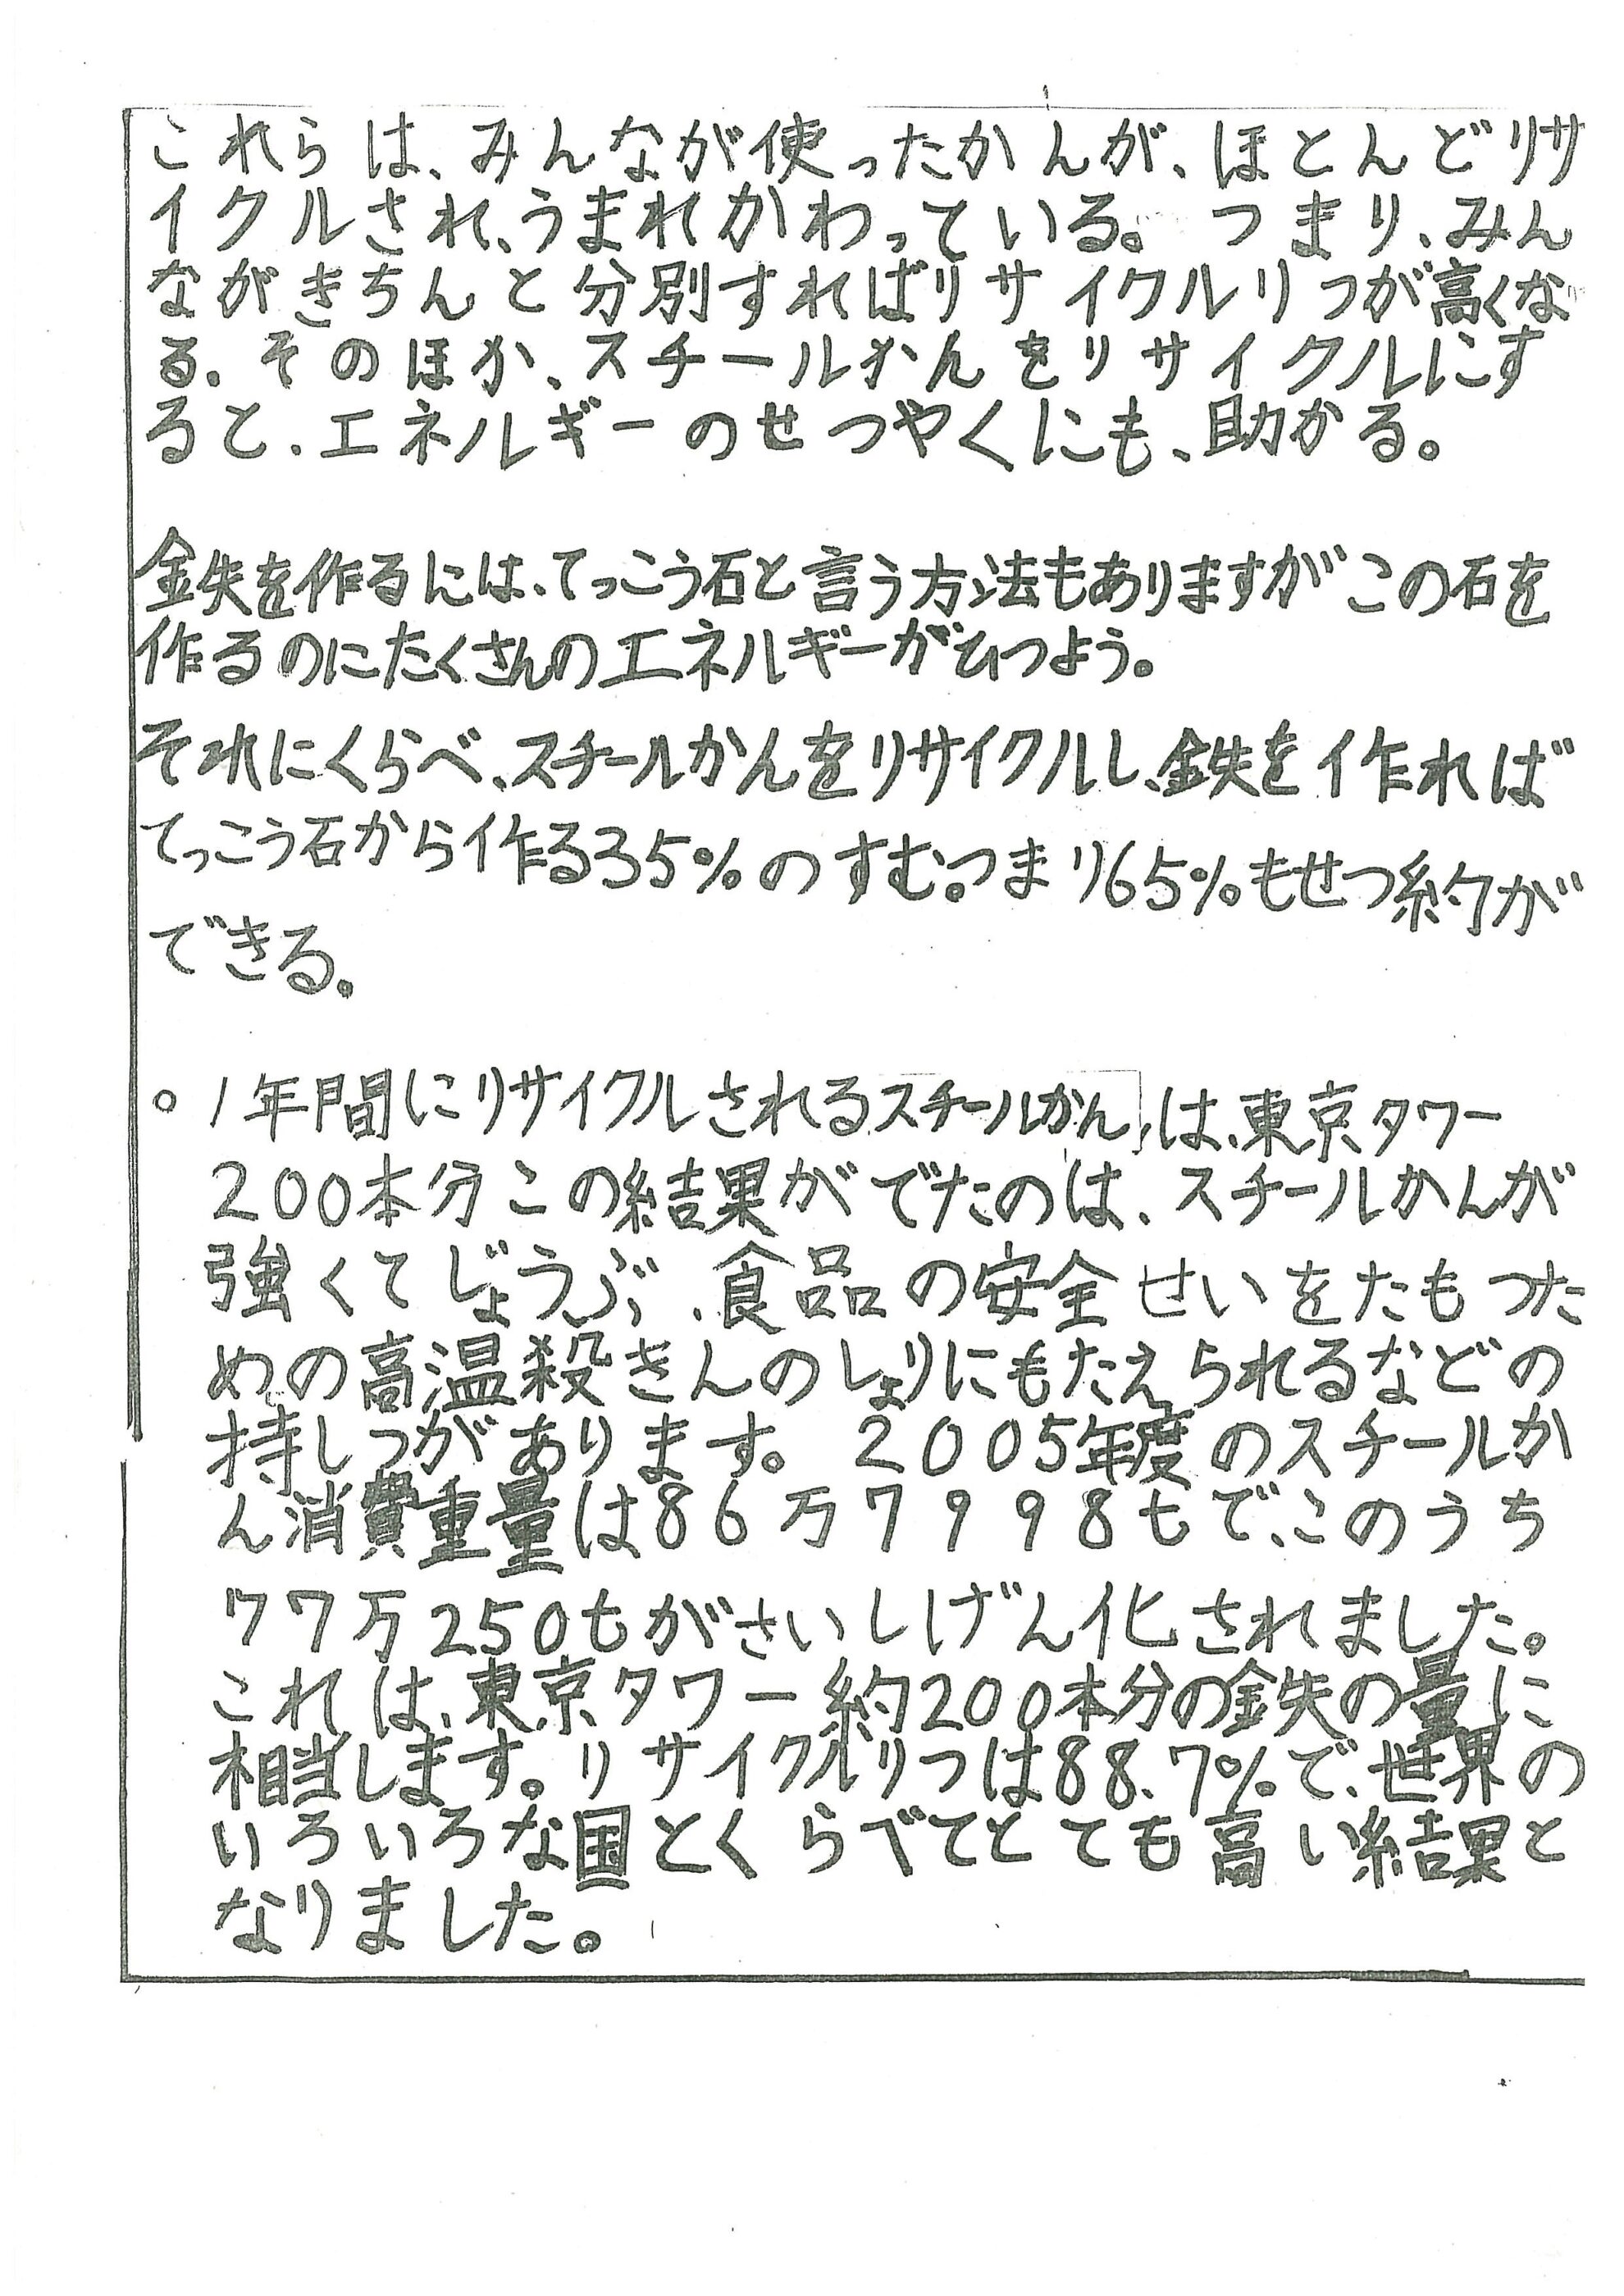 これらは、みんなが使ったかんが、ほとんどリサ
イクルされ、うまれかわっている。つまり、みん
ながきちんと分別すればリサイクルリつが高くな
る。そのほか、スチールかんをリサイクルにす
ると、エネルギーのせつやくにも、助かる。
鉄を作るには、てっこう石と言う方法もありますがこの石を
作るのにたくさんのエネルギーがひつよう。
それにくらべ、スチールかんをリサイクルし、鉄を作れば
てっこう石から作る35%のすむ。つまり65%もせつ約が
できる。
○1年間にリサイクルされるスチールかんは、東京タワー
200本分この結果がでたのは、スチールかんが
強くてじょうぶ、食品の安全せいをたもつた
めの高温殺きんのしょりにもたえられるなどの
持しつがあります。2005年度のスチールか
ん消費重量は86万7998もで、このうち
77万250もがさいしげん化されました。
これは、東京タワー約200本分の鉄の量に
相当します。リサイクルりつは88.7%で、世界の
いろいろな国とくらべてとても高い結果と
なりました。